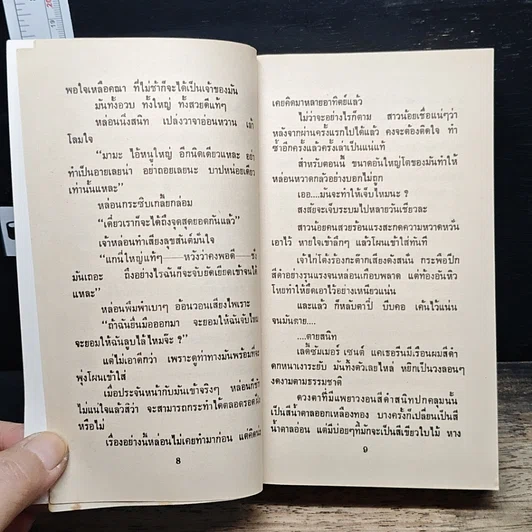 พอใจเหลือคณา ที่ไม่ช้าก็จะได้เป็นเจ้าของมัน
มันทั้งอวบ ทั้งใหญ่ ทั้งสวยดีแท้ๆ
หล่อนนิ่งสนิท เปล่งวาจาอ่อนหวาน
โลมใจ
"มามะ ไอ้หนูใหญ่ อีกนิดเดียวแหละ
ทำเป็นอายเลยน่า อย่าถอยเลยนะ บาปหน่อยเดียว
เท่านั้นแหละ"
หล่อนกระซิบเกลี้ยกล่อม
"เดี๋ยวเราก็จะได้ถึงจุดสุดยอดกันแล้ว"
เจ้าหล่อนทำเสียงสุขสันต์มั่นใจ
"แกนี่ใหญ่แท้ๆ—หวังว่าคงพอดี—
มันเถอะ ถึงอย่างไรฉันก็จะจับยัดเยียดเข้าจนได้
แหละ"
หล่อนพึมพำเบาๆ อ้อนวอนเสียงไพเราะ
"ถ้าฉันยื่นมือออกมา จะยอมให้ฉันจับไหม
จะยอมให้ฉันลูบไล้ไหมจ๊ะ ?
แต่ไม่เอาดีกว่า เพราะดูท่าทางมันพร้อมที่จะ
พุ่งโผนเข้าใส่
เมื่อประจันหน้ากับมันเข้าจริงๆ หล่อนก็
ไม่แน่ใจแล้วสิว่า จะสามารถกระทำได้ตลอดรอดฝั่ง
หรือไม่
เรื่องอย่างนี้หล่อนไม่เคยทำมาก่อน แต่คิดน่ะ
8
เคยคิดมาหลายอาทิตย์แล้ว
ไม่ว่าจะอย่างไรก็ตาม สาวน้อยเชื่อแน่ๆว่า
หลังจากผ่านครั้งแรกไปได้แล้ว คงจะต้องติดใจ ทำ
ซ้ำอีกครั้งแล้วครั้งเล่าเป็นแน่แท้
สำหรับตอนนี้ ขนาดอันใหญ่โตของมันทำให้
หล่อนหวาดกลัวอย่างบอกไม่ถูก
เออ....มันจะทำให้เจ็บไหมนะ ?
สงสัยจะเจ็บระบมไปหลายวันเชียวละ
สาวน้อยคนสวยร้อนแรงสะกดความหวาดหวั่น
เอาไว้ หายใจเข้าลึกๆ แล้วโผนเข้าใส่ทันที
เจ้าไก่โต้งร้องกะต๊ากเสียงดังสนั่น กระพือปีก
สีดำอย่างรุนแรงจนหล่อนเกือบพลาด แต่ท้องอันหิว
โหยทำให้ยึดเอาไว้อย่างเหนียวแน่น
และแล้ว ก็หลับตาปี๋ บีบคอ เค้นไว้แน่น
จนมันตาย....
....ตายสนิท
เลดี้ซัมเมอร์ เซนต์ แคเธอรีนมีเรือนผมสีดำ
ดกหนาเงาระยับ มันทิ้งตัวเลยไหล่ หยักเป็นวงลอนๆ
งดงามตามธรรมชาติ
ดวงตาที่มีแพยาวงอนสีดำสนิทปกคลุมนั้น
เป็นสีน้ำตาลออกเหลืองทอง บางครั้งก็เปลี่ยนเป็นสี
น้ำตาลอ่อน แต่มีบ่อยๆที่มักจะเป็นสีเขียวใบไม้ หาง
9